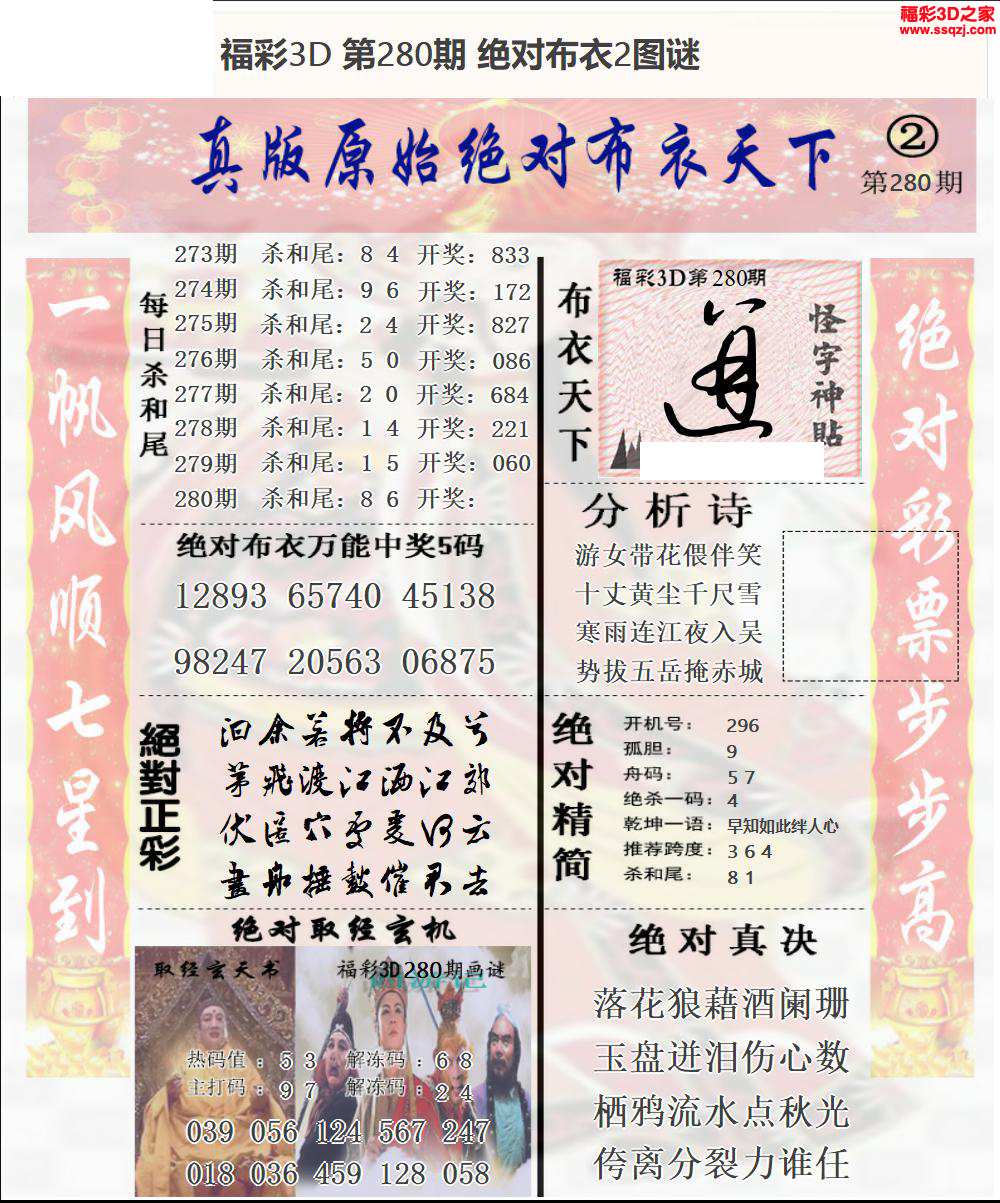 福彩3D之家
www.ssqzj.com
福彩3D 第280期 绝对布衣2图谜
真版原始绝对布衣天下
②
第280期
一帆风顺七星到
每日杀和尾
273期 杀和尾：8 4 开奖：833
274期 杀和尾：9 6 开奖：172
275期 杀和尾：2 4 开奖：827
276期 杀和尾：5 0 开奖：086
277期 杀和尾：2 0 开奖：684
278期 杀和尾：1 4 开奖：221
279期 杀和尾：1 5 开奖：060
280期 杀和尾：8 6 开奖：
绝对布衣万能中奖5码
12893 65740 45138
98247 20563 06875
絕對正彩
绝对取经玄机
取经玄天书
福彩3D280期画谜
热码值：5 3 解冻码：6 8
主打码：9 7 解冻码：2 4
039 056 124 567 247
018 036 459 128 058
布衣天下
福彩3D第280期
怪字神贴
分析诗
游女带花偎伴笑
十丈黄尘千尺雪
寒雨连江夜入吴
势拔五岳掩赤城
绝对精简
开机号：296
孤胆：9
舟码：5 7
绝杀一码：4
乾坤一语：早知如此绊人心
推荐跨度：3 6 4
杀和尾：8 1
绝对真决
落花狼藉酒阑珊
玉盘迸泪伤心数
栖鸦流水点秋光
侉离分裂力谁任
绝对彩票步步高